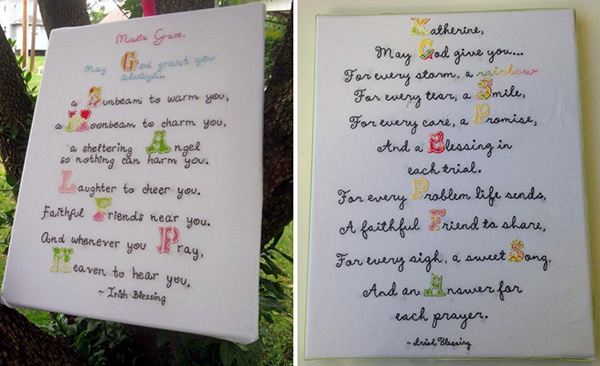 Malia Grace.
May God grant you
always...
a Sunbeam to warm you,
a Moonbeam to charm you,
a sheltering Angel
so nothing can harm you.
Laughter to cheer you.
Faithful Friends near you.
And whenever you Pray,
Heaven to hear you.
~ Irish Blessing
Katherine,
May God give you...
For every storm, a rainbow
For every tear, a Smile,
For every care, a Promise,
And a Blessing in
each trial.
For every Problem life sends,
A faithful Friend to share,
For every sigh, a sweet Song,
And an Answer for
each prayer.
~Irish Blessing